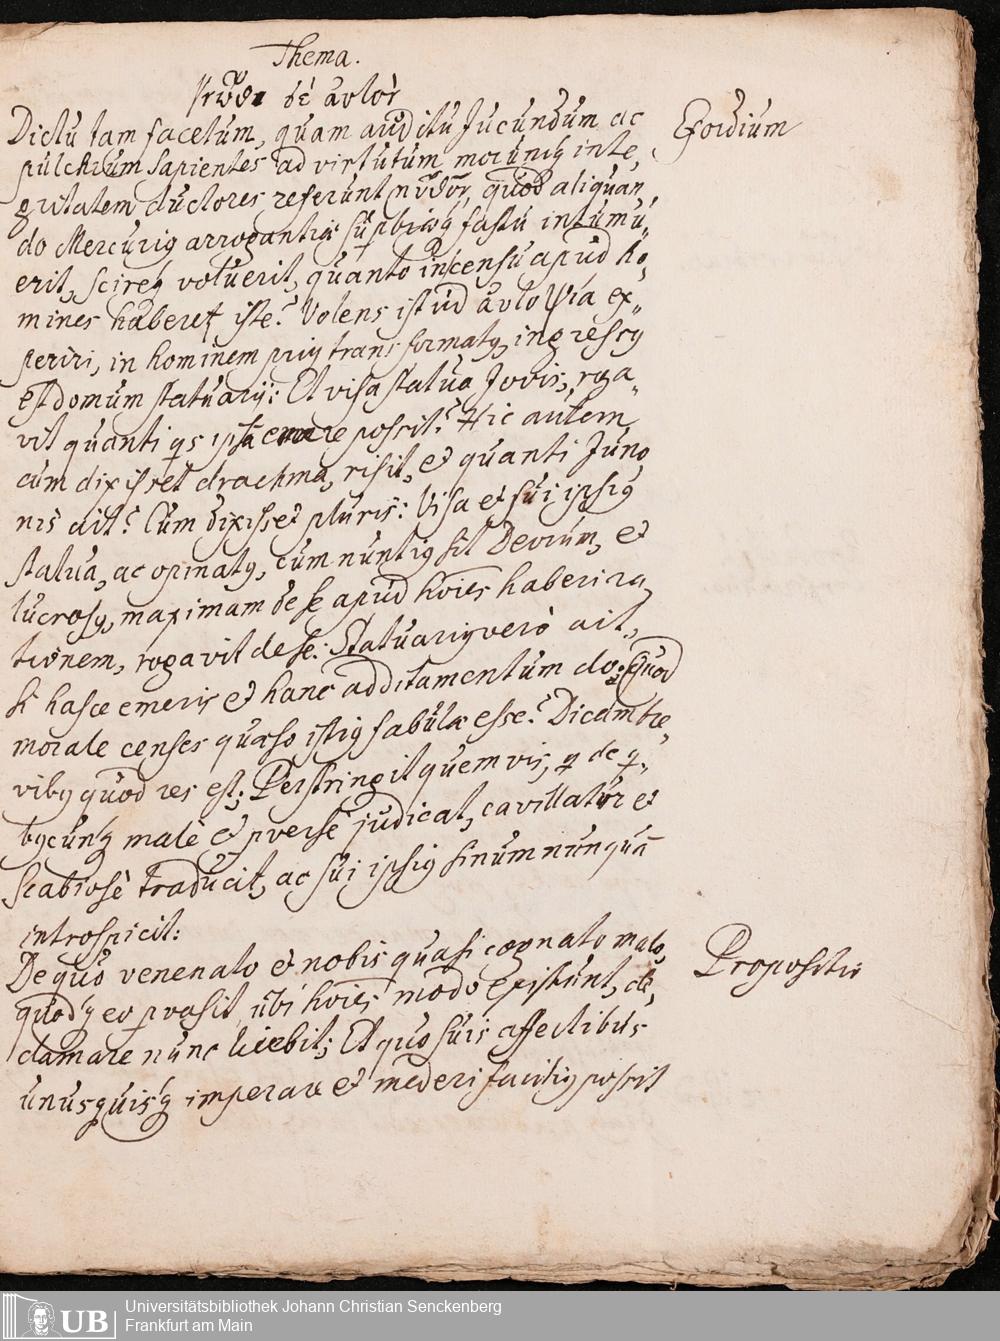 Thema.
γνῶθι δὲ αὐτὸν
Dictu tam facetum, quam auditu Jucundum ac
Exordium
pulchrum sapientes ad virtutum morumq́ inte,
gritatem ductores referunt μῦθον, quod aliquan,
do Mercuriꝰ arrogantiæ suꝑbiæq́ fastu intumu,,
erit, scireq́ voluerit, quanto in censu apud ho,
mines haberet iste? Volens istud αὐτοψία ex,,
periri, in hominem priꝰ transformatꝰ, ingressꝰ
est domum statuarij: Et visa statua Jovis, roga,,
vit quanti qs ipsã emere possit? Hic autem
cum dixisset drachma, risit, et quanti Juno,
nis ait? Cum dixisset pluris: Visa et sui ipsiꝰ
statua, ac opinatꝰ, cum nuntiꝰ sit Deorum, et
lucrosꝰ, maximam de se apud hoïes haberi ra,
tionem, rogavit de se: Statuariꝰ verò ait,
si hasce emeris et hanc additamentum do: Quod
morale censes quæso istiꝰ fabulæ esse? Dicam bre,
vibꝰ quod res est; Perstringit quemvis, ꝗ de ꝗ,,
bꝰcunq́ male et ꝑverse judicat, cavillatur et
scabiosè traducit, ac sui ipsiꝰ sinum nunquã
introspicit:
De quo venenato et nobis quasi cognato malo,
Propositio
quodq́ eo ꝑvasit, ubi hoïes modo existunt, de,
clamare nunc licebit; Et quo suis affectibus
unusquisq́ imperare et mederi faciliꝰ possit
Universitätsbibliothek Johann Christian Senckenberg
UB
Frankfurt am Main